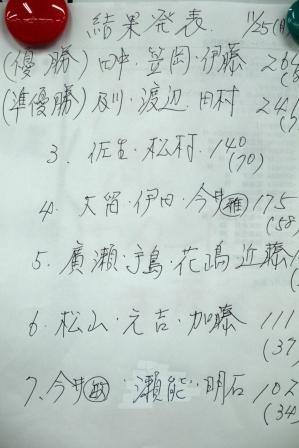 結果発表. 11/25(月
(優 勝) 田中・笠岡・伊藤 264
(準優勝) 及川・渡辺・田村 241
3. 佐生・松村. 140
(70)
4. 大留・伊田・今井(雅) 175
(58)
5. 廣瀬・宇鳥・花嶋 近藤
6. 松山・元吉・加藤 111
(37
7. 今井(敏)・瀬能・明石 102
(34)